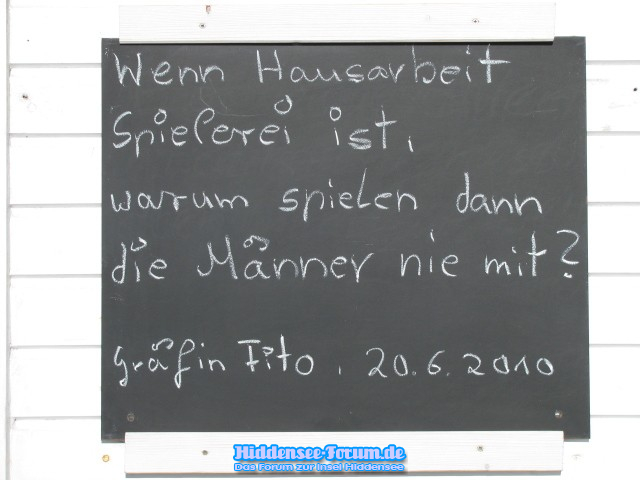 Wenn Hausarbeit
Spielerei ist,
warum spielen dann
die Männer nie mit?
Gräfin Fito, 20.6.2010
Hiddensee-Forum.de
Das Forum zur Insel Hiddensee